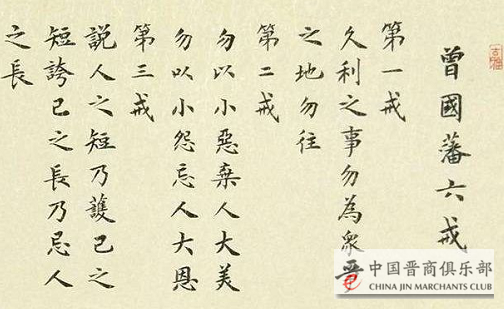 曾國藩六戒
第一戒
久利之事勿為衆
之地勿往
第二戒
勿以小惡棄人大美
勿以小怨忘人大恩
第三戒
説人之短乃護己之
短誇己之長乃忌人
之長
晋
中国晋商俱乐部
CHINA JIN MARCHANTS CLUB